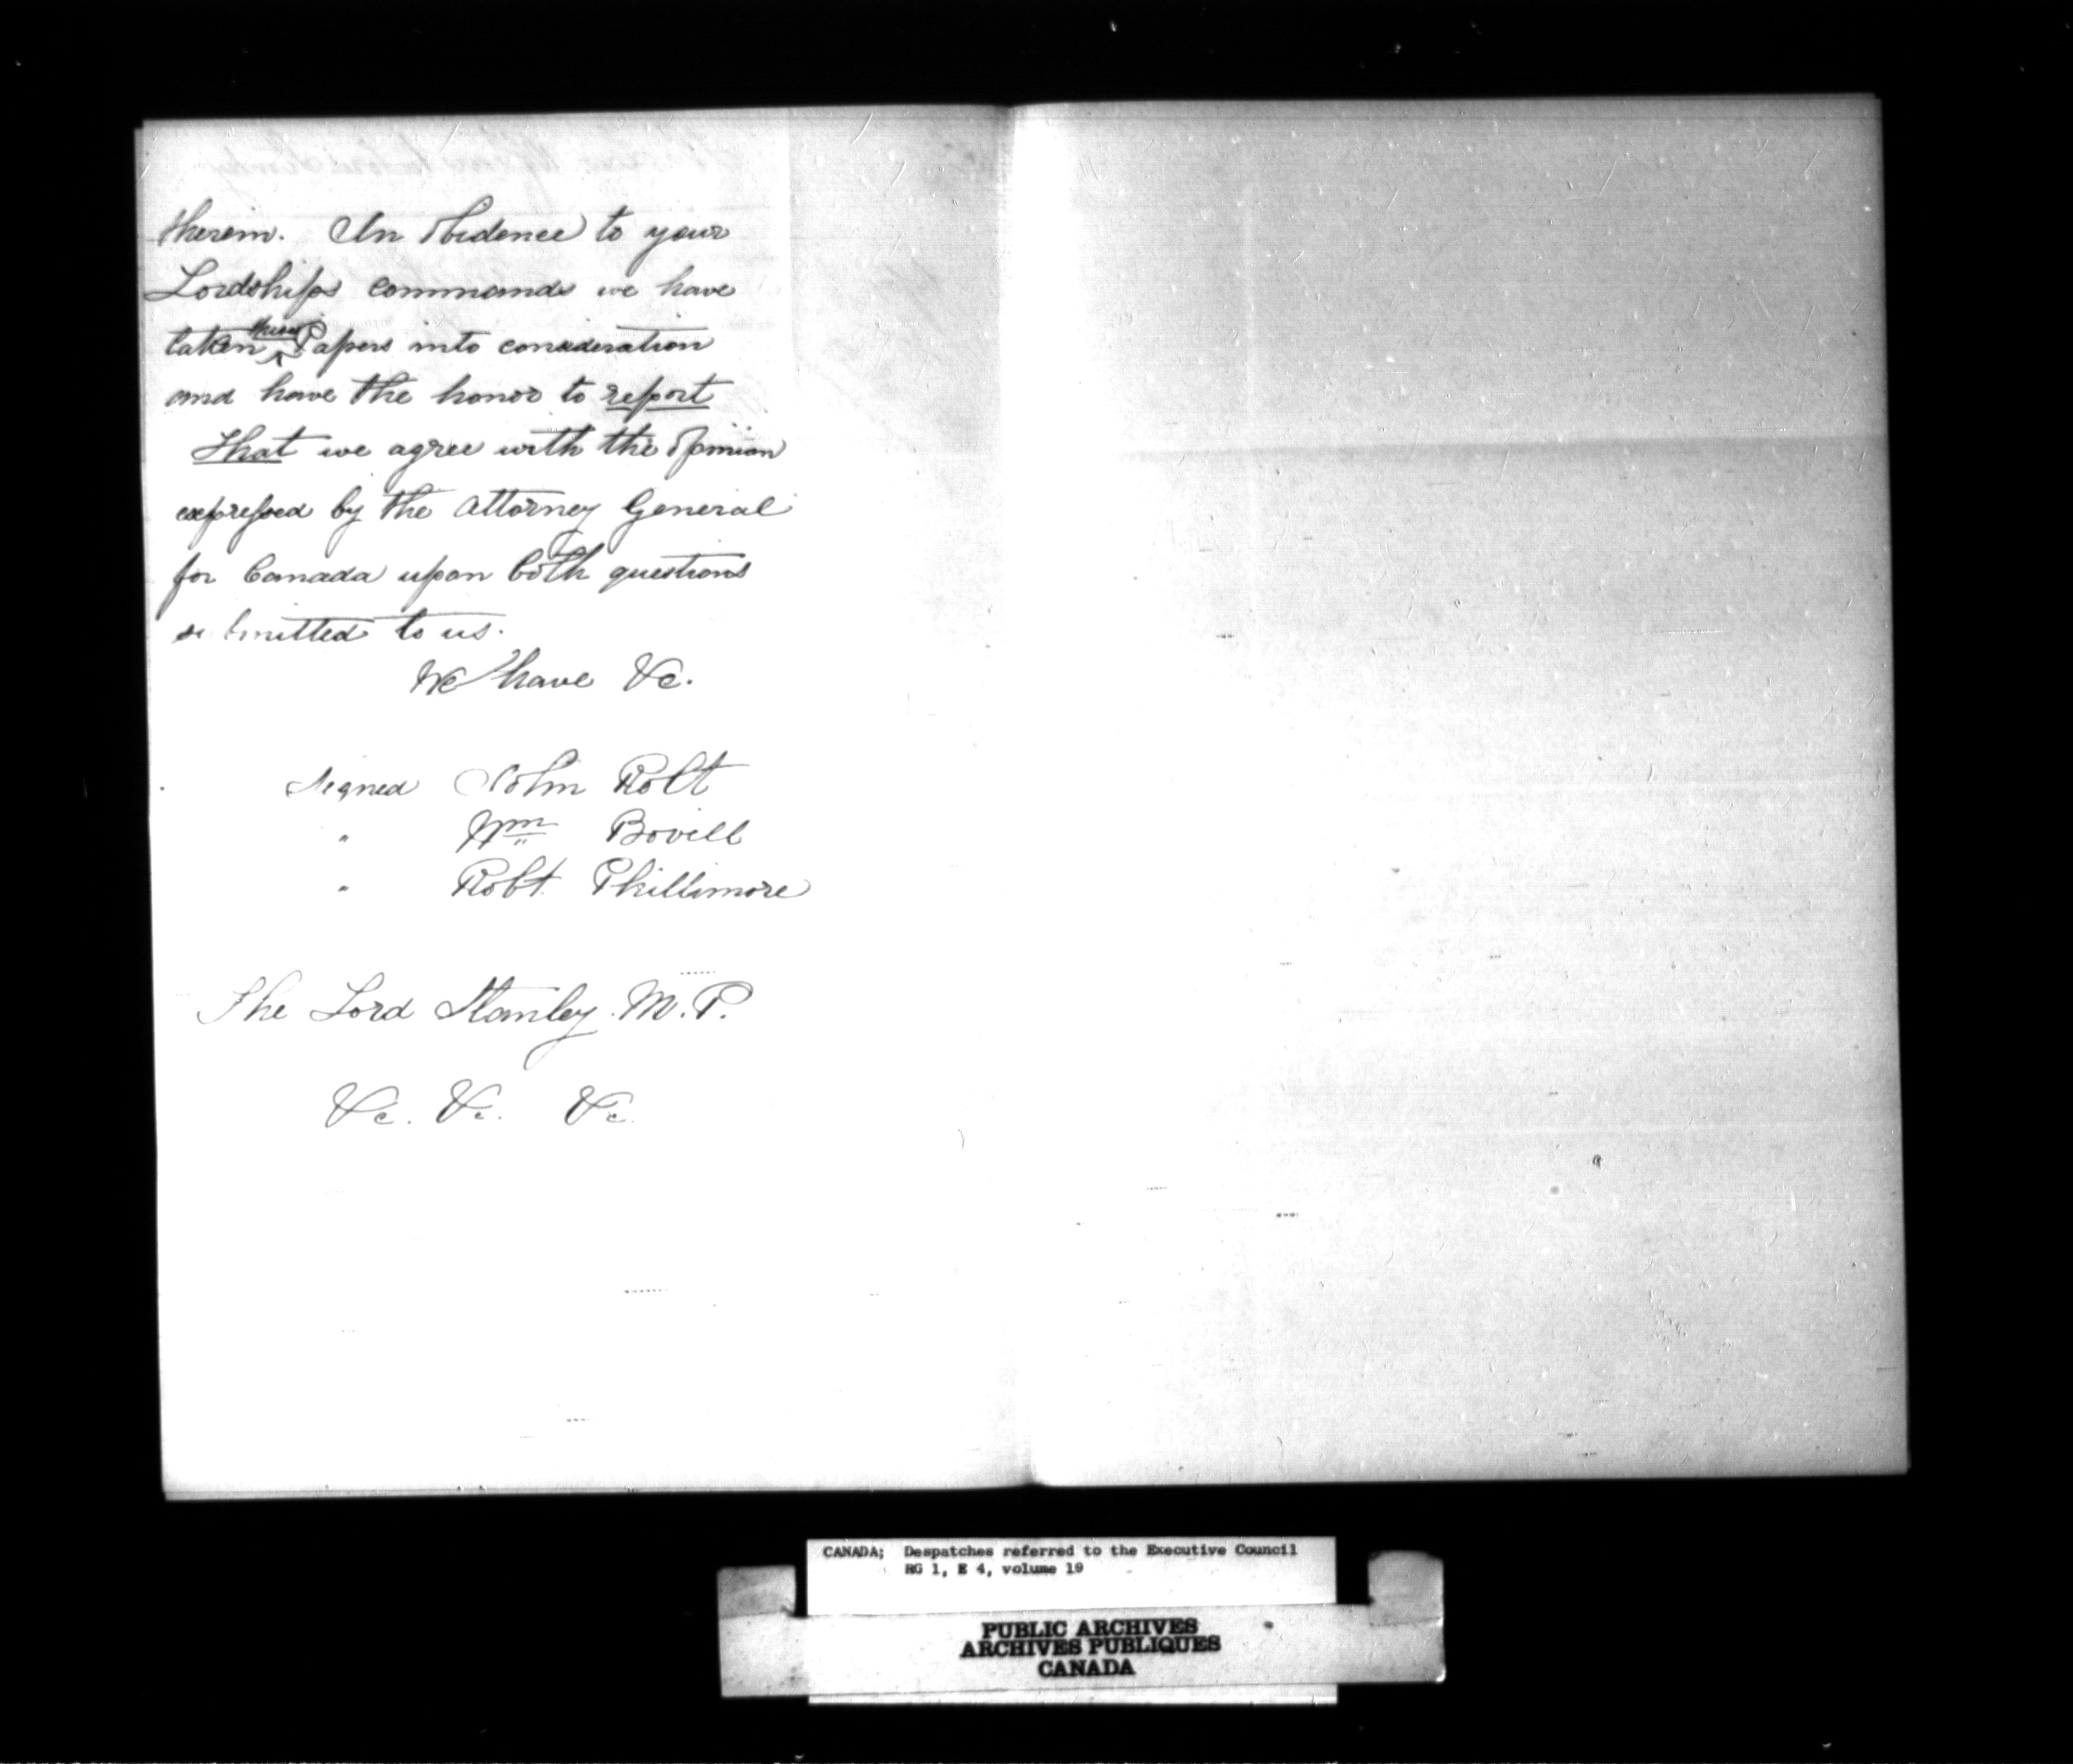 therein. In obidence to your
Lordships commands we have
taken these Papers into consideration
and have the honor to report
That we agree with the Opinion
expressed by the Attorney General
for Canada upon both questions
submitted to us.
We have &c.
Signed John Rolt
" Wm Bovill
" Robt Phillimore
The Lord Stanley. M.P.
&c. &c. &c.
CANADA; Despatches referred to the Executive Council
RG 1, E 4, volume 19
PUBLIC ARCHIVES
ARCHIVES PUBLIQUES
CANADA